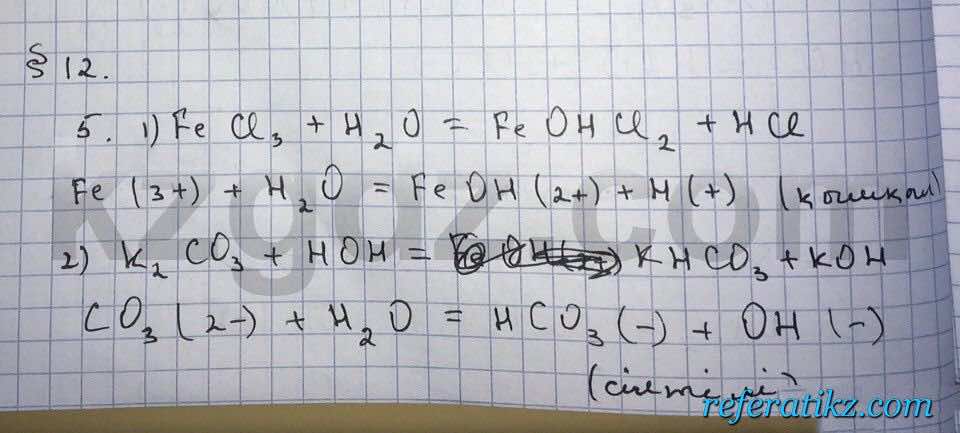 § 12.
5. 1) FeCl₃ + H₂O = FeOHCl₂ + HCl
Fe (3+) + H₂O = FeOH (2+) + H (+) (қышқыл)
2) K₂CO₃ + HOH = KHCO₃ + KOH
CO₃ (2-) + H₂O = HCO₃ (-) + OH (-)
(сілтілі)
kzgdz.com
referatikz.com